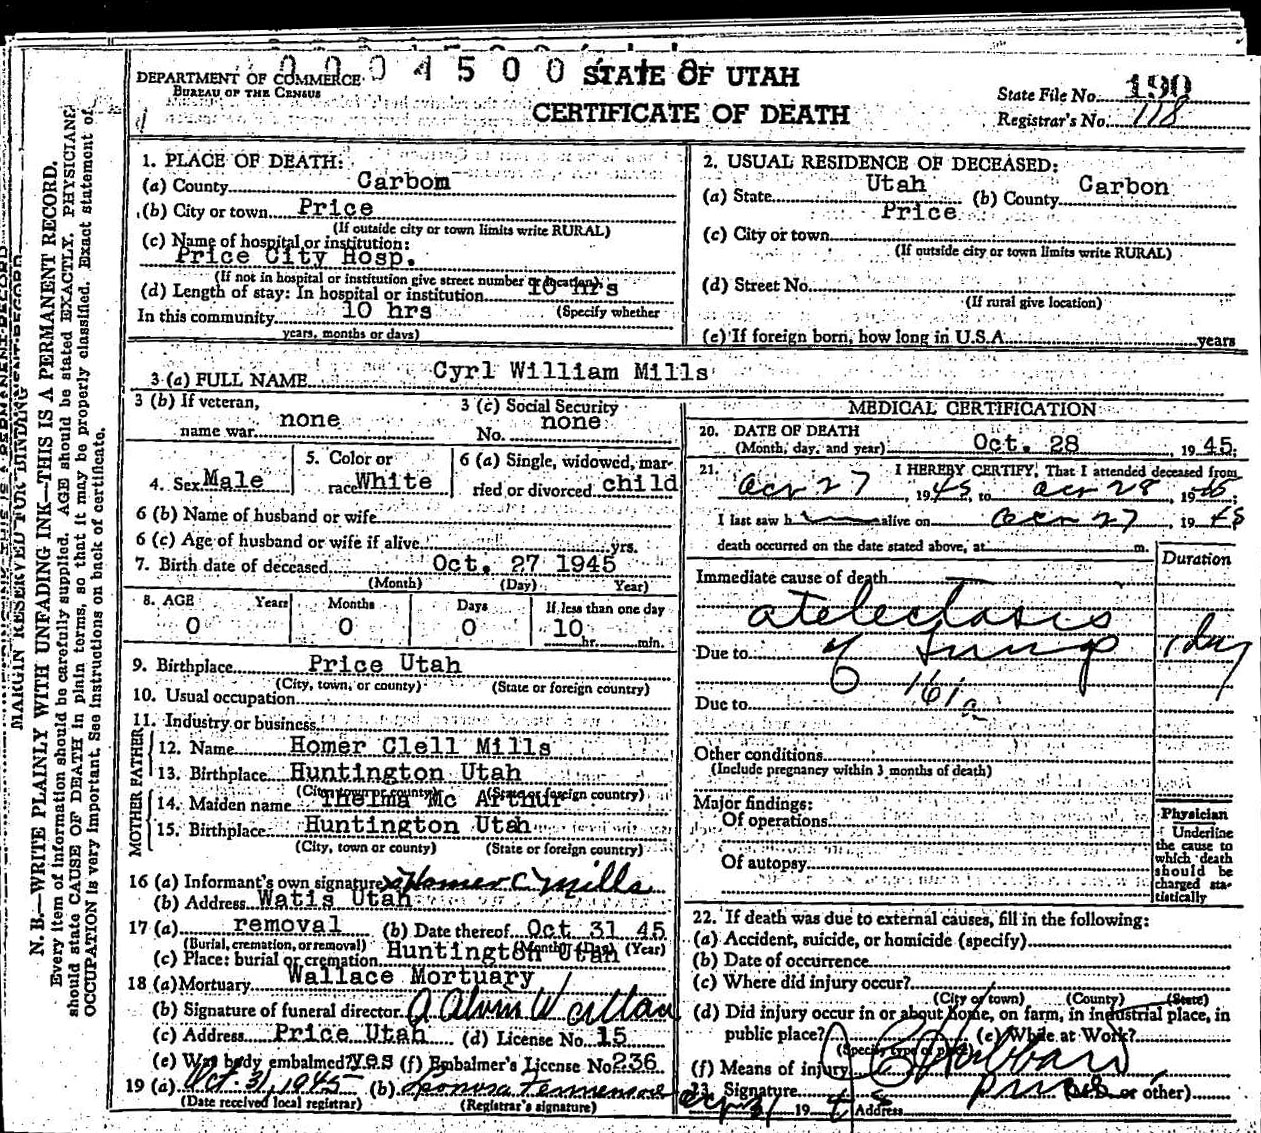 0004500 STATE OF UTAH
DEPARTMENT OF COMMERCE
BUREAU OF THE CENSUS
CERTIFICATE OF DEATH
State File No. 190
Registrar's No. 118
MARGIN RESERVED FOR BINDING
N. B.—WRITE PLAINLY WITH UNFADING INK—THIS IS A PERMANENT RECORD.
Every item of information should be carefully supplied. AGE should be stated EXACTLY. PHYSICIANS
should state CAUSE OF DEATH in plain terms, so that it may be properly classified. Exact statement of
OCCUPATION is very important. See instructions on back of certificate.
1. PLACE OF DEATH:
(a) County Carbom
(b) City or town Price
(If outside city or town limits write RURAL)
(c) Name of hospital or institution:
Price City Hosp.
(If not in hospital or institution give street number or location)
(d) Length of stay: In hospital or institution 10 hrs
In this community 10 hrs (Specify whether
years, months or days)
2. USUAL RESIDENCE OF DECEASED:
(a) State Utah (b) County Carbon
Price
(c) City or town
(If outside city or town limits write RURAL)
(d) Street No.
(If rural give location)
(e) If foreign born, how long in U.S.A. years
3 (a) FULL NAME Cyrl William Mills
3 (b) If veteran, name war none
3 (c) Social Security No. none
4. Sex Male
5. Color or race White
6 (a) Single, widowed, married or divorced child
6 (b) Name of husband or wife
6 (c) Age of husband or wife if alive yrs.
7. Birth date of deceased Oct. 27 1945
(Month) (Day) Year)
8. AGE Years Months Days If less than one day
0 0 0 10 hr. min.
9. Birthplace Price Utah
(City, town, or county) (State or foreign country)
10. Usual occupation
11. Industry or business
FATHER
12. Name Homer Clell Mills
13. Birthplace Huntington Utah
(City town or county) (State or foreign country)
MOTHER
14. Maiden name Thelma Mc Arthur
15. Birthplace Huntington Utah
(City, town or county) (State or foreign country)
16 (a) Informant's own signature Homer C Mills
(b) Address Watis Utah
17 (a) removal (b) Date thereof Oct 31 45
(Burial, cremation, or removal) (Month) (Day) (Year)
(c) Place: burial or cremation Huntington Utah
18 (a) Mortuary Wallace Mortuary
(b) Signature of funeral director
(c) Address Price Utah (d) License No. 15
(e) Was body embalmed? yes (f) Embalmer's License No. 236
19 (a) Oct. 31, 1945 (b)
(Date received local registrar) (Registrar's signature)
MEDICAL CERTIFICATION
20. DATE OF DEATH
(Month, day, and year) Oct. 28 1945;
21. I HEREBY CERTIFY, That I attended deceased from
Oct 27, 1945, to Oct 28, 1945;
I last saw h alive on Oct 27, 1945
death occurred on the date stated above, at m.
Duration
Immediate cause of death
atelectasis
Due to of Lung 1 day
161a
Due to
Other conditions
(Include pregnancy within 3 months of death)
Major findings:
Of operations
Of autopsy
Physician
Underline
the cause to
which death
should be
charged sta-
tistically
22. If death was due to external causes, fill in the following:
(a) Accident, suicide, or homicide (specify)
(b) Date of occurrence
(c) Where did injury occur?
(City or town) (County) (State)
(d) Did injury occur in or about home, on farm, in industrial place, in
public place? (e) While at Work?
(Specify type of place)
(f) Means of injury
23. Signature (M.D. or other)
19 45 Address Price